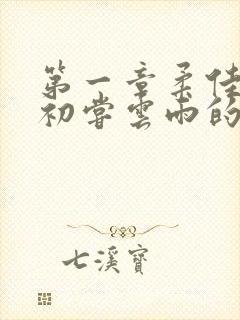 第一章柔佳
初嘗雲雨的
七溪寶